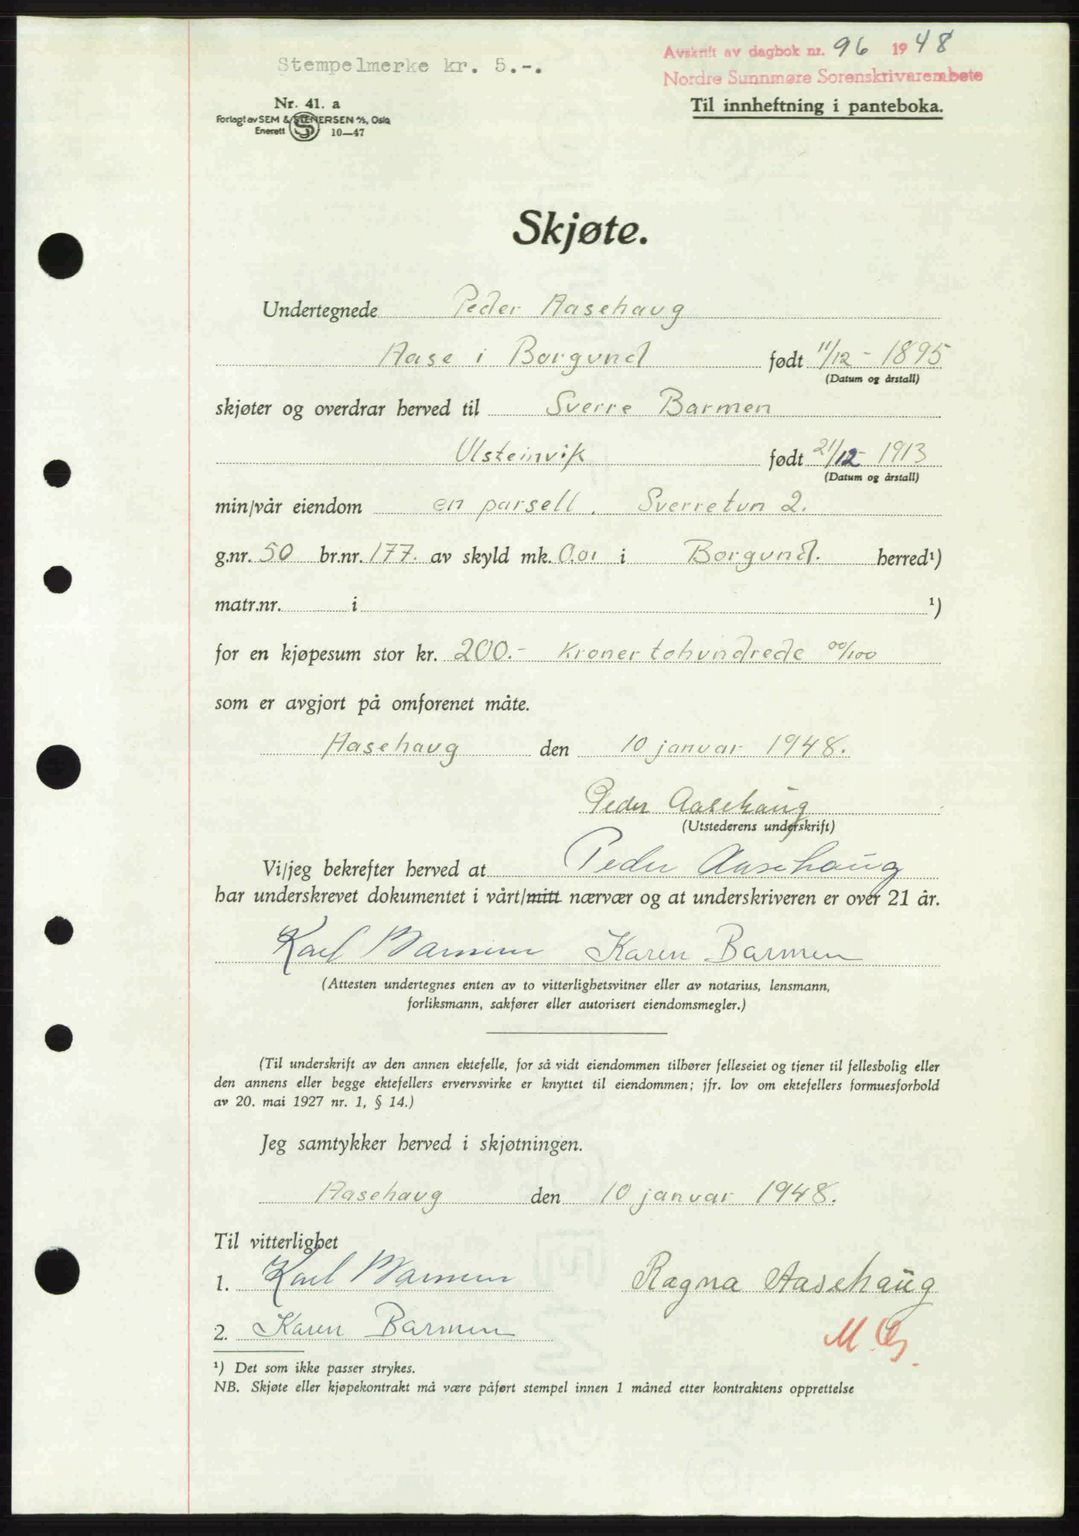 Stempelmerke kr. 5.-.
Avskrift av dagbok nr. 96 1948
Nordre Sunnmøre Sorenskrivarembete
Nr. 41. a
Forlagt av SEM & STENERSEN A/S, Oslo
Enerett S 10—47
Til innheftning i panteboka.
Skjøte.
Undertegnede Peder Aasehaug
Aase i Borgund født 11/12 - 1895
(Datum og årstall)
skjøter og overdrar herved til Sverre Barmen
Ulsteinvik født 21/12 - 1913
(Datum og årstall)
min/vår eiendom en parsell, Sverretun 2.
g.nr. 50 br.nr. 177. av skyld mk. 0.01 i Borgund. herred¹)
matr.nr. i ¹)
for en kjøpesum stor kr. 200.- Kroner tohundrede 00/100
som er avgjort på omforenet måte.
Aasehaug den 10 januar 1948.
Peder Aasehaug
(Utstederens underskrift)
Vi/jeg bekrefter herved at Peder Aasehaug
har underskrevet dokumentet i vårt/mitt nærvær og at underskriveren er over 21 år.
Karl Barmen Karen Barmen
(Attesten undertegnes enten av to vitterlighetsvitner eller av notarius, lensmann,
forliksmann, sakfører eller autorisert eiendomsmegler.)
(Til underskrift av den annen ektefelle, for så vidt eiendommen tilhører felleseiet og tjener til fellesbolig eller
den annens eller begge ektefellers ervervsvirke er knyttet til eiendommen; jfr. lov om ektefellers formuesforhold
av 20. mai 1927 nr. 1, § 14.)
Jeg samtykker herved i skjøtningen.
Aasehaug den 10 januar 1948.
Til vitterlighet
1. Karl Barmen Ragna Aasehaug
2. Karen Barmen
¹) Det som ikke passer strykes.
NB. Skjøte eller kjøpekontrakt må være påført stempel innen 1 måned etter kontraktens opprettelse